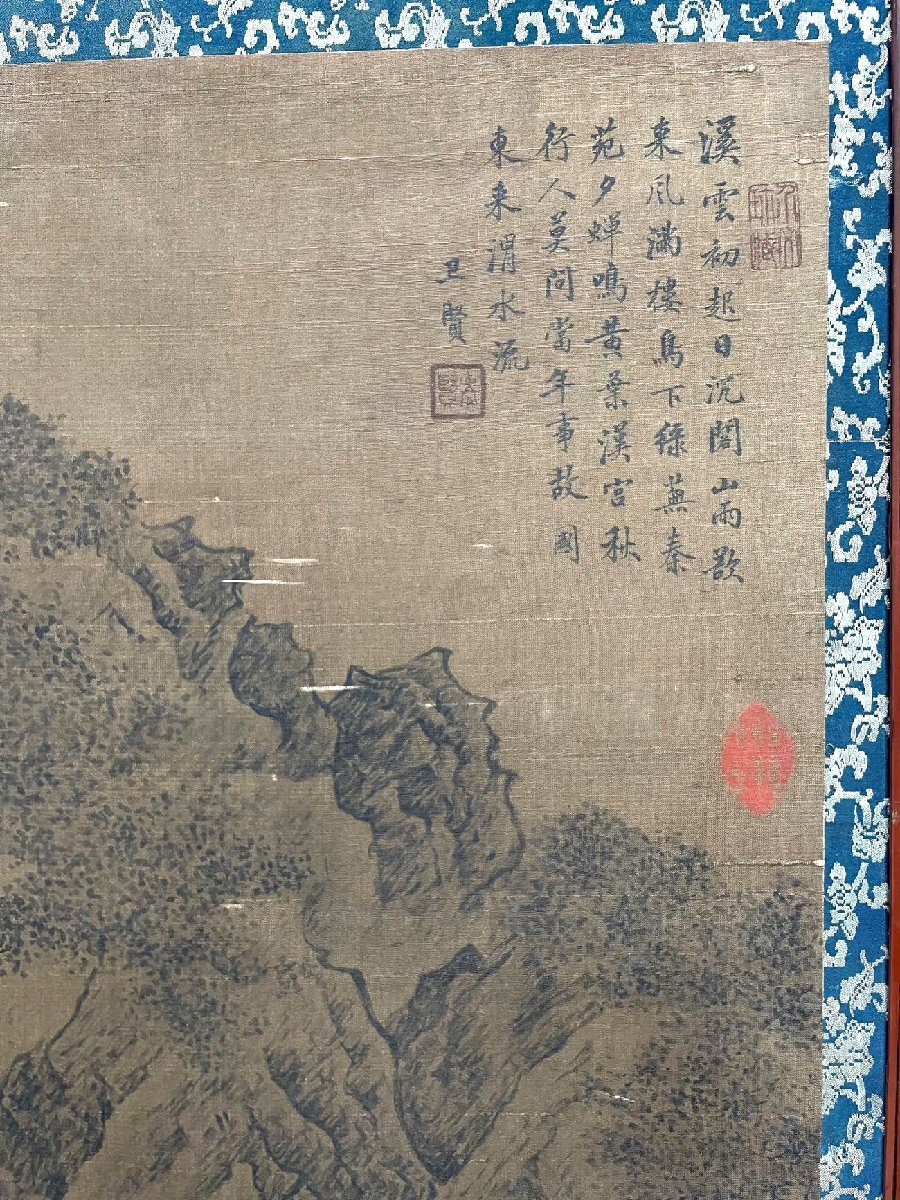 溪雲初起日沉閣山雨欲
来風滿樓鳥下綠蕪秦
苑夕蟬鳴黄葉漢宫秋
行人莫問當年事故國
東来渭水流
卫賢